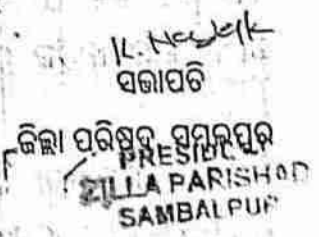 ସଭାପତି
ଜିଲ୍ଲା ପରିଷଦ, ସମ୍ବଲପୁର
PRESIDENT
ZILLA PARISHAD
SAMBALPUR